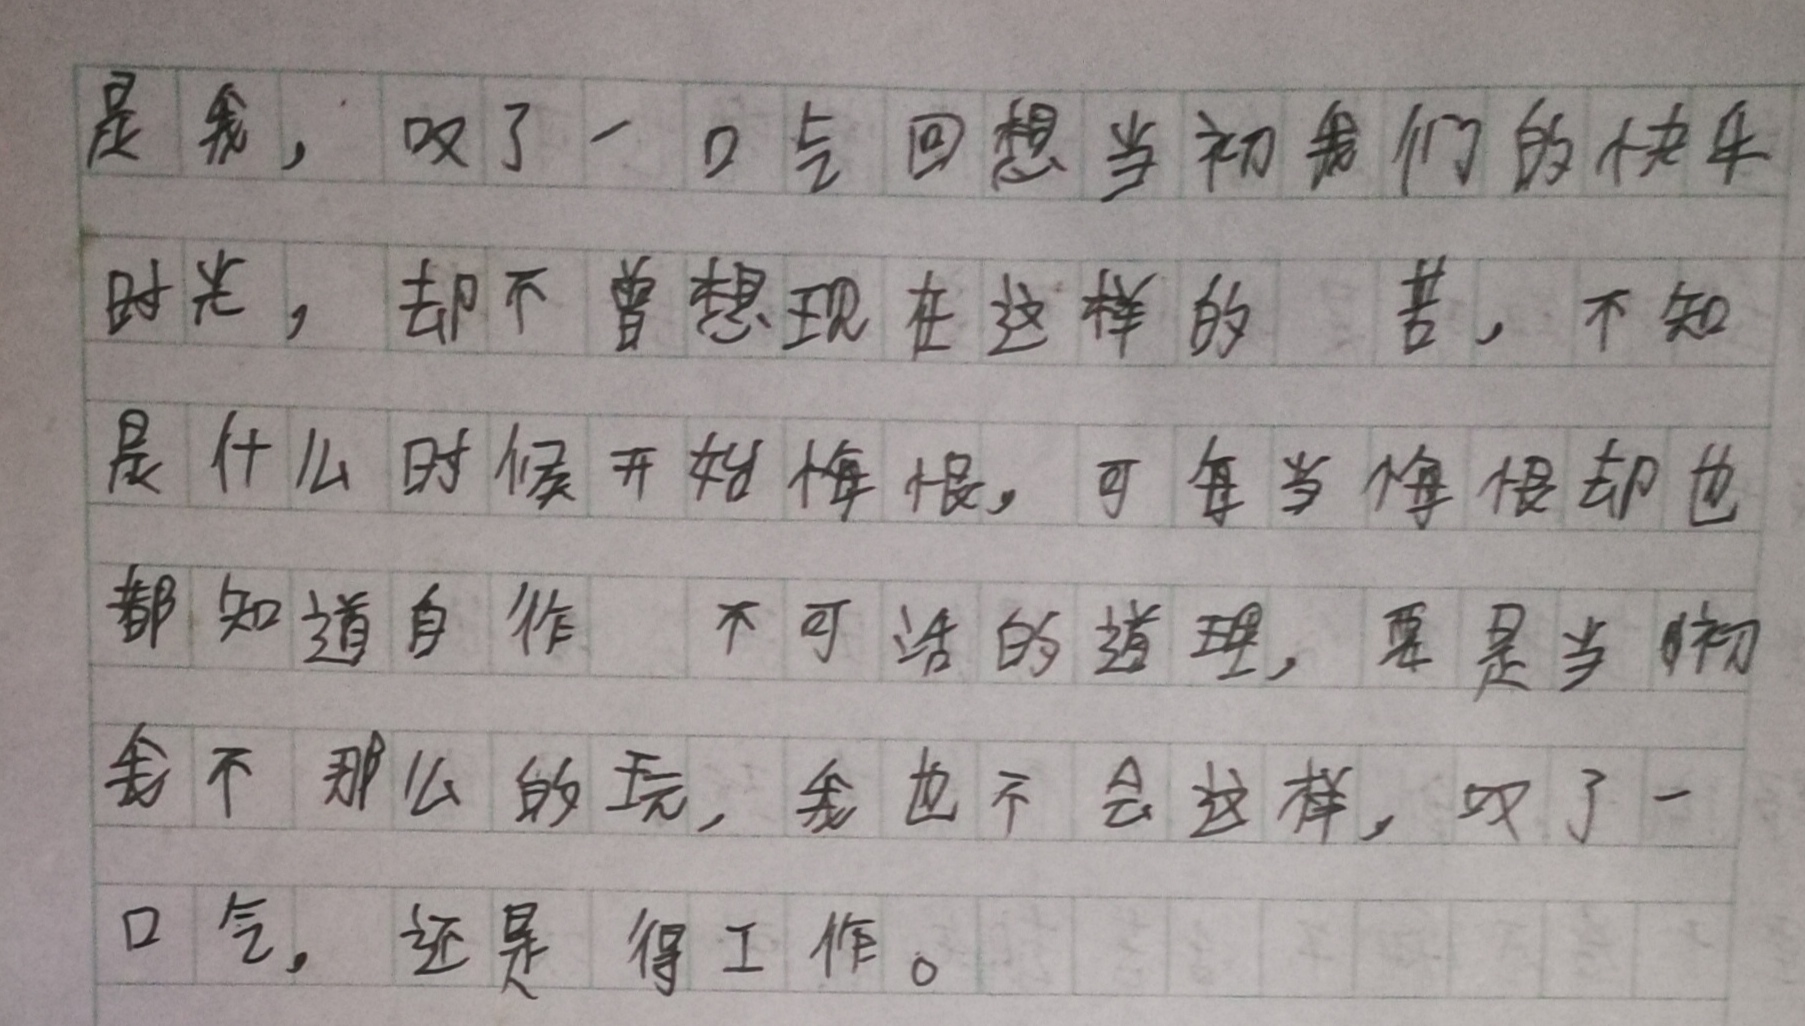 是我，叹了一口气回想当初我们的快乐
时光，却不曾想现在这样的苦，不知
是什么时候开始悔恨，可每当悔恨却也
都知道自作不可活的道理，要是当初
我不那么的玩，我也不会这样，叹了一
口气，还是得工作。